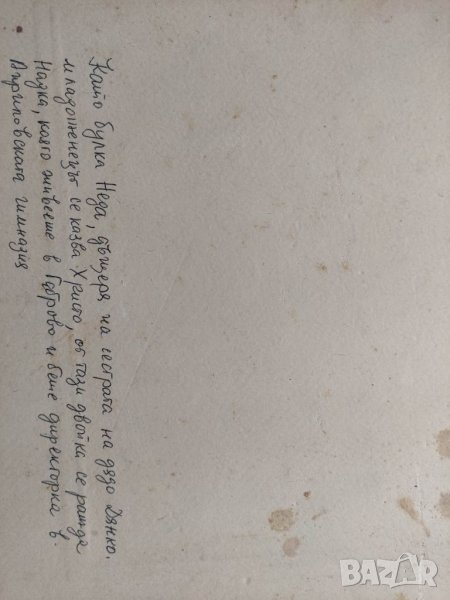 Като булка Неда, дъщеря на сестрата на дядо Дянко.
младоженецът се казва Христо, от тази двойка се ражда
Надка, която живееше в Габрово и беше директорка в
Априловската гимназия
BAZAR